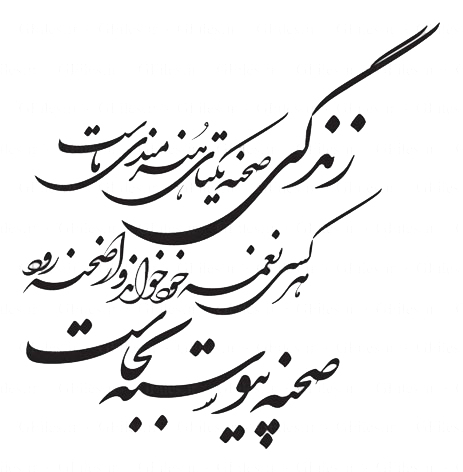 زندگی صحنه یکتای هنرمندی ماست
هر کسی نغمه خود خواند و از صحنه رود
صحنه پیوسته بجاست